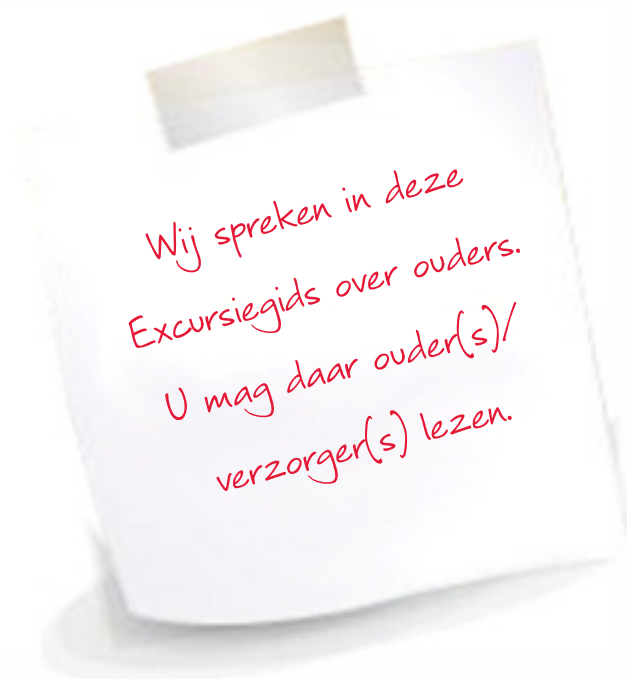 Wij spreken in deze
Excursiegids over ouders.
U mag daar ouder(s)/
verzorger(s) lezen.